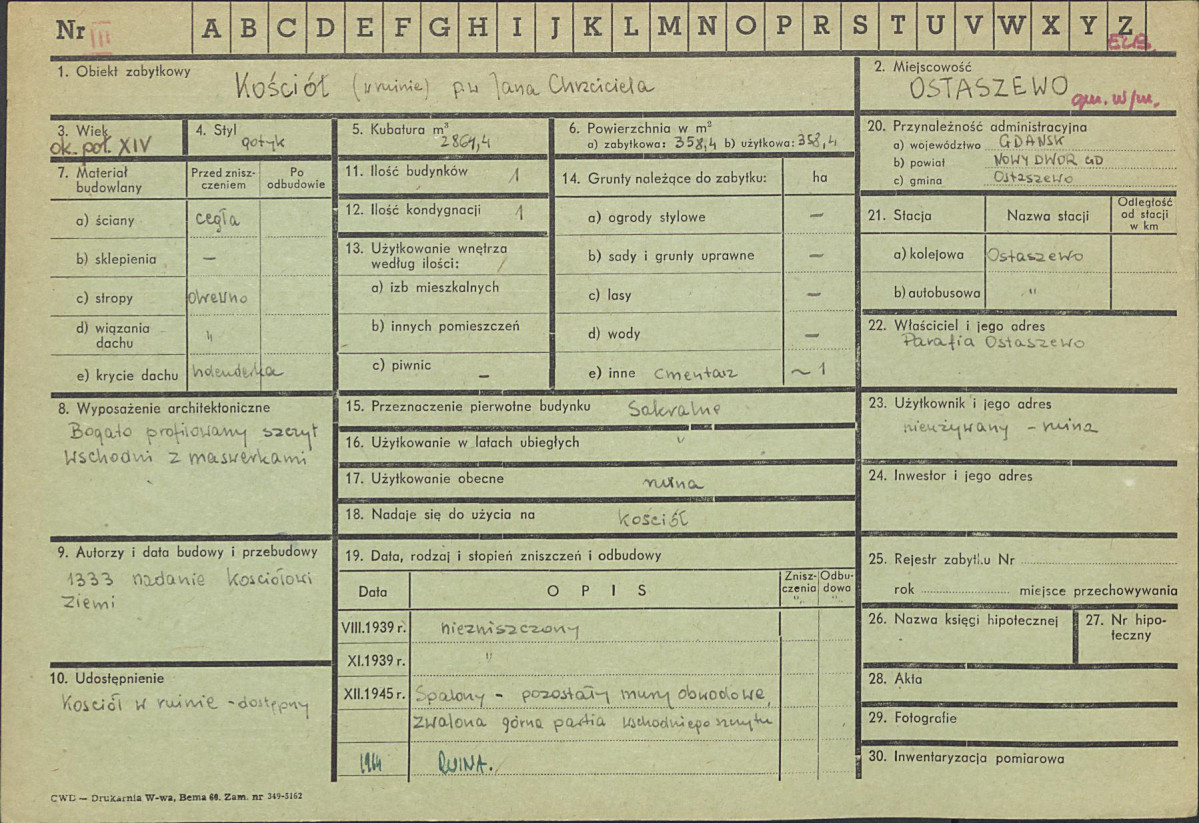 Nr III A B C D E F G H I J K L M N O P R S T U V W X Y Z
ELB.
1. Obiekt zabytkowy
Kościół (w ruinie) p.w Jana Chrzciciela
2. Miejscowość
OSTASZEWO
gm. w/m.
3. Wiek
ok. poł. XIV
4. Styl
gotyk
5. Kubatura m³
2864,4
6. Powierzchnia w m²
a) zabytkowa: 358,4 b) użytkowa: 358,4
7. Materiał budowlany
Przed zniszczeniem
Po odbudowie
a) ściany cegła
b) sklepienia —
c) stropy drewno
d) wiązania dachu "
e) krycie dachu holenderka
8. Wyposażenie architektoniczne
Bogato profilowany szczyt
wschodni z maswerkami
9. Autorzy i data budowy i przebudowy
1333 nadanie kościołowi
ziemi
10. Udostępnienie
Kościół w ruinie - dostępny
11. Ilość budynków 1
12. Ilość kondygnacji 1
13. Użytkowanie wnętrza
według ilości: /
a) izb mieszkalnych
b) innych pomieszczeń
c) piwnic —
14. Grunty należące do zabytku: ha
a) ogrody stylowe —
b) sady i grunty uprawne —
c) lasy —
d) wody —
e) inne cmentarz ~ 1
15. Przeznaczenie pierwotne budynku Sakralne
16. Użytkowanie w latach ubiegłych "
17. Użytkowanie obecne ruina
18. Nadaje się do użycia na kościół
19. Data, rodzaj i stopień zniszczeń i odbudowy
Data OPIS Zniszczenia "/. Odbudowa "/.
VIII.1939 r. niezniszczony
XI.1939 r. "
XII.1945 r. Spalony - pozostały mury obwodowe,
zwalona górna partia wschodniego szczytu
1964 RUINA.
20. Przynależność administracyjna
a) województwo GDAŃSK
b) powiat NOWY DWÓR GD
c) gmina Ostaszewo
21. Stacja Nazwa stacji Odległość od stacji w km
a) kolejowa Ostaszewo
b) autobusowa "
22. Właściciel i jego adres
Parafia Ostaszewo
23. Użytkownik i jego adres
nieużywany - ruina
24. Inwestor i jego adres
25. Rejestr zabytku Nr
rok miejsce przechowywania
26. Nazwa księgi hipotecznej
27. Nr hipoteczny
28. Akta
29. Fotografie
30. Inwentaryzacja pomiarowa
CWD — Drukarnia W-wa, Bema 60. Zam. nr 349-5162